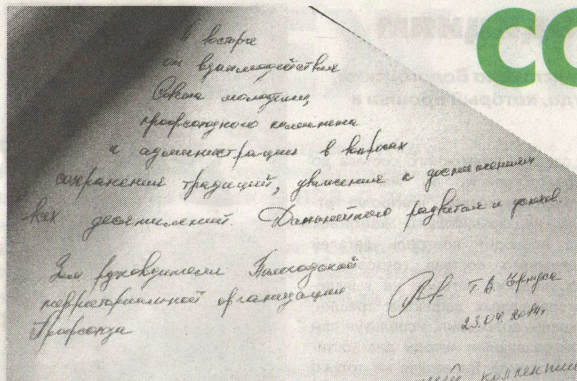 СО
В восторге
от взаимодействия
Совета молодежи,
профсоюзного комитета
и администрации в вопросах
сохранения традиций, уважения к достижениям
всех десятилетий. Дальнейшего развития и успехов.
Зам руководителя
территориальной организации
Профсоюза
Т.В.
23.04.2014г.